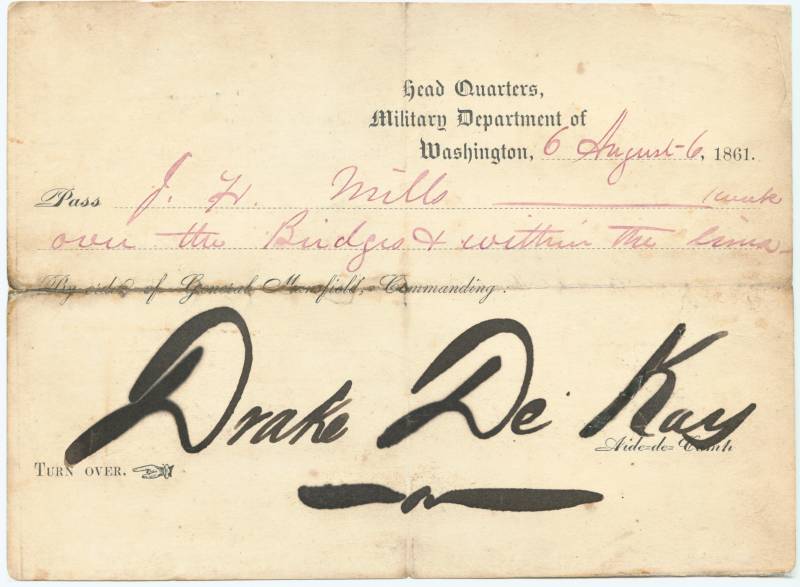 Head Quarters,
Military Department of
Washington, 6 August 6, 1861.
Pass J. H. Mills 1 week
over the Bridges & within the lines
By order of General Mansfield, Commanding:
Drake De Kay
Aide-de-Camp
TURN OVER.